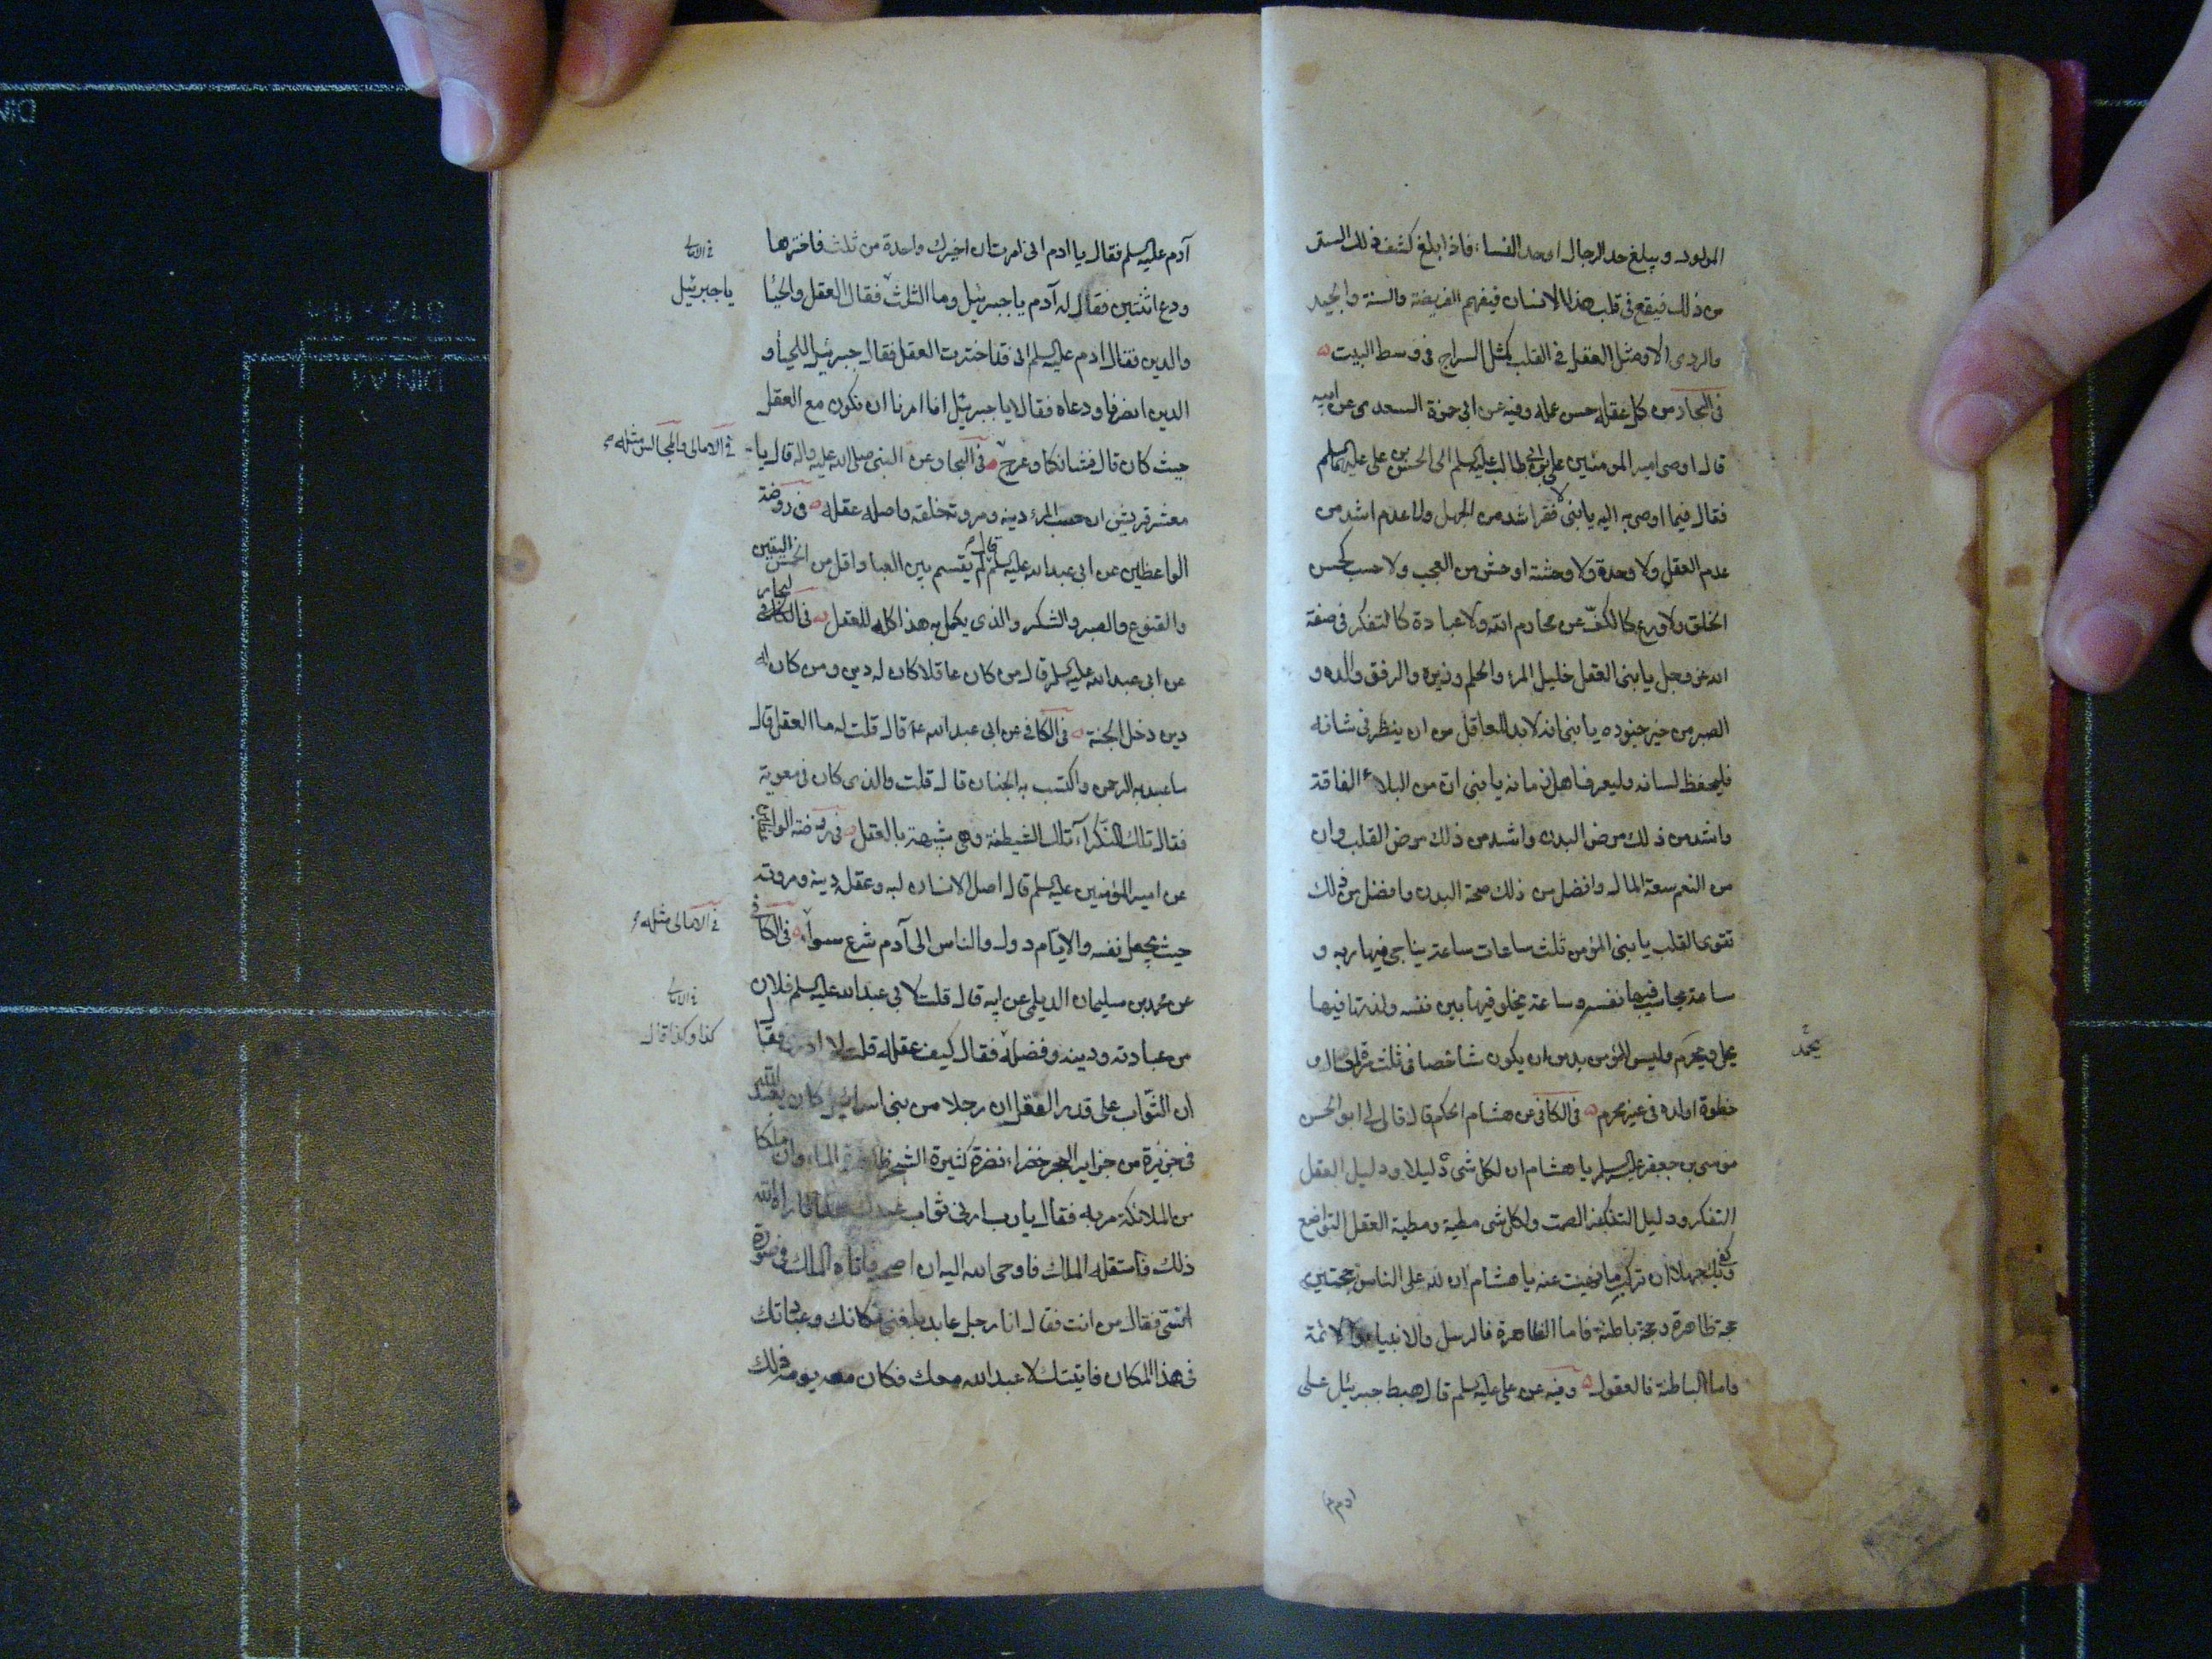 المولود ويبلغ حد الرجال او حد النساء فاذا بلغ كشف ذلك الستر
من ذلك فيقع في قلب هذا الانسان فيفهم الفريضة والسنة والجيد
والردى الا ومثل العقل في القلب كمثل السراج في وسط البيت
في البحار من كمل عقله حسن عمله وفيه عن ابى حمزة السعدى عن ابيه
قال اوصى امير المومنين على بن ابى طالب عليه السلم الى الحسن بن على عليهما السلم
فقال فيما اوصى به اليه يا بنى لا فقر اشد من الجهل ولا عدم اشد من
عدم العقل ولا وحدة ولا وحشة اوحش من العجب ولا حسب كحسن
الخلق ولا ورع كالكف عن محارم الله ولا عبادة كالتفكر في صنعة
الله عز وجل يا بنى العقل خليل المرء والحلم وزيره والرفق والده و
الصبر من خير جنوده يا بنى انه لا بد للعاقل من ان ينظر في شانه
فليحفظ لسانه وليعرف اهل زمانه يا بنى ان من البلاء الفاقة
واشد من ذلك مرض البدن واشد من ذلك مرض القلب وان
من النعم سعة المال وافضل من ذلك صحة البدن وافضل من ذلك
تقوى القلب يا بنى المؤمن ثلث ساعات ساعة يناجى فيها ربه و
ساعة يحاسب فيها نفسه وساعة يخلو فيها بين نفسه ولذتها فيها
يحل ويحرم وليس للمؤمن بد من ان يكون شاخصا في ثلث مرمة
يحمد
خطوة او لذة في غير محرم في الكافى عن هشام الحكم قال قال لى ابو الحسن
موسى بن جعفر عليه السلم يا هشام ان لكل شى دليلا ودليل العقل
التفكر ودليل التفكر الصمت ولكل شى مطية ومطية العقل التواضع
وكفى بك جهلا ان تركب ما نهيت عنه يا هشام ان لله على الناس حجتين
حجة ظاهرة وحجة باطنة فاما الظاهرة فالرسل والانبياء والائمة
واما الباطنة فالعقول وفيه عن على عليه السلم قال هبط جبرئيل على
ادم
آدم عليه السلم فقال يا ادم انى امرت ان اخيرك واحدة من ثلث فاخترها
ودع اثنتين فقال له آدم يا جبرئيل وما الثلث فقال العقل والحيا
يا جبرئيل
والدين فقال ادم عليه السلم انى قد اخترت العقل فقال جبرئيل للحيا و
الدين انصرفا ودعاه فقالا يا جبرئيل انا امرنا ان نكون مع العقل
حيث كان قال فشانكما وعرج في البحار وعن النبى صلى الله عليه واله قال يا
في الامالى والمجالس مثله
معشر قريش ان حسب المرء دينه ومروته خلقه واصله عقله في روضة
الواعظين عن ابى عبدالله عليه السلم قال لم يقسم بين العباد اقل من الخمس اليقين
والقنوع والصبر والشكر والذى يكمل به هذا كله للعقل في الكافى
عن ابى عبد الله عليه السلم قال من كان عاقلا كان له دين ومن كان له
دين دخل الجنة في الكافى عن ابى عبد الله ع قال قلت له ما العقل قال
ما عبد به الرحمن واكتسب به الجنان قال قلت والذى كان في معوية
فقال تلك النكراء تلك الشيطنة وهى شبيهة بالعقل في روضة الواعظين
عن امير المؤمنين عليه السلم قال اصل الانسان لبه وعقله دينه ومروته
حيث يجعل نفسه والايام دول والناس الى آدم شرع سواء في الكافى
في الامالى مثله
عن محمد بن سليمان الديلمى عن ابيه قال قلت لابى عبد الله عليه السلم فلان
من عبادته ودينه وفضله فقال كيف عقله قلت لا ادرى فقال
كذا وكذا قال
ان الثواب على قدر العقل ان رجلا من بنى اسرائيل كان يعبد الله
في جزيرة من جزاير البحر خضراء نضرة كثيرة الشجر ظاهرة الماء وان ملكا
من الملائكة مر به فقال يا رب ارنى ثواب عبدك هذا فاراه الله
ذلك فاستقله الملك فاوحى الله اليه ان اصحبه فاتاه الملك في صورة
انسى فقال من انت فقال انا رجل عابد بلغنى مكانك وعبادتك
في هذا المكان فاتيتك لاعبد الله معك فكان معه يومه ذلك